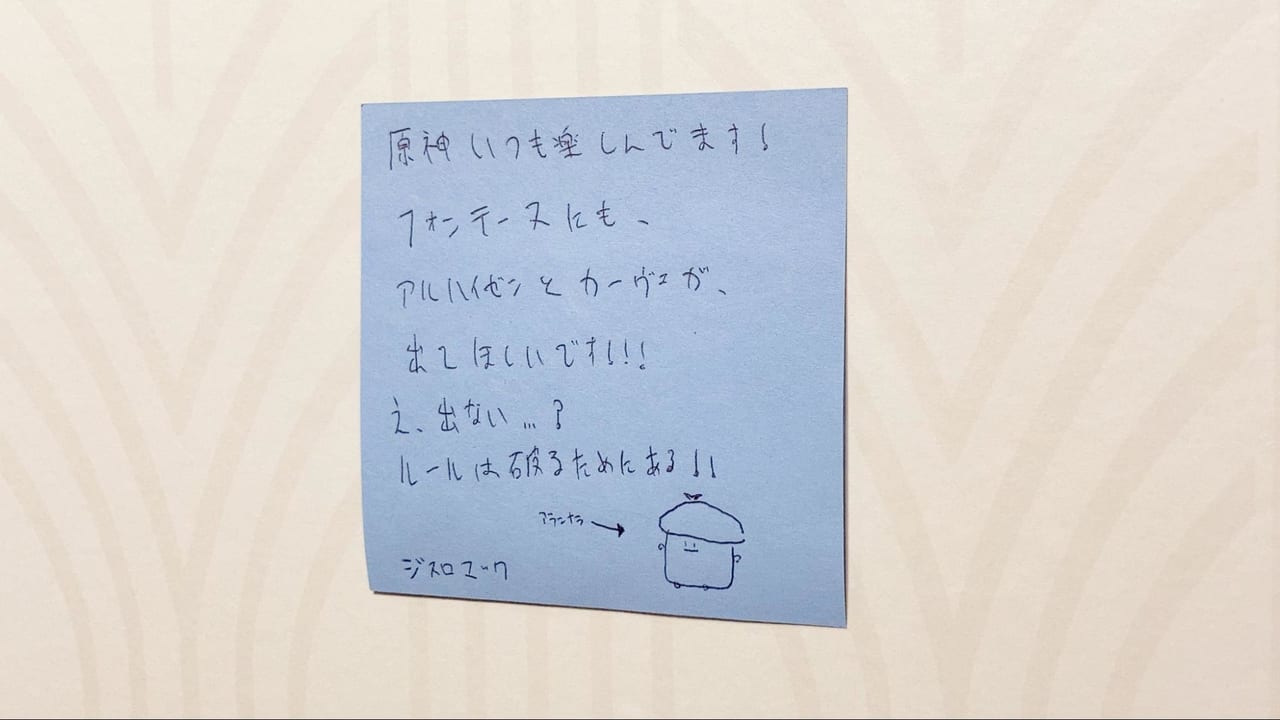 原神いつも楽しんでます!
フォンテーヌにも、
アルハイゼンとカーヴェが、
出てほしいです!!!
え、出ない…?
ルールは破るためにある!!
アランナラ
ジスロマック